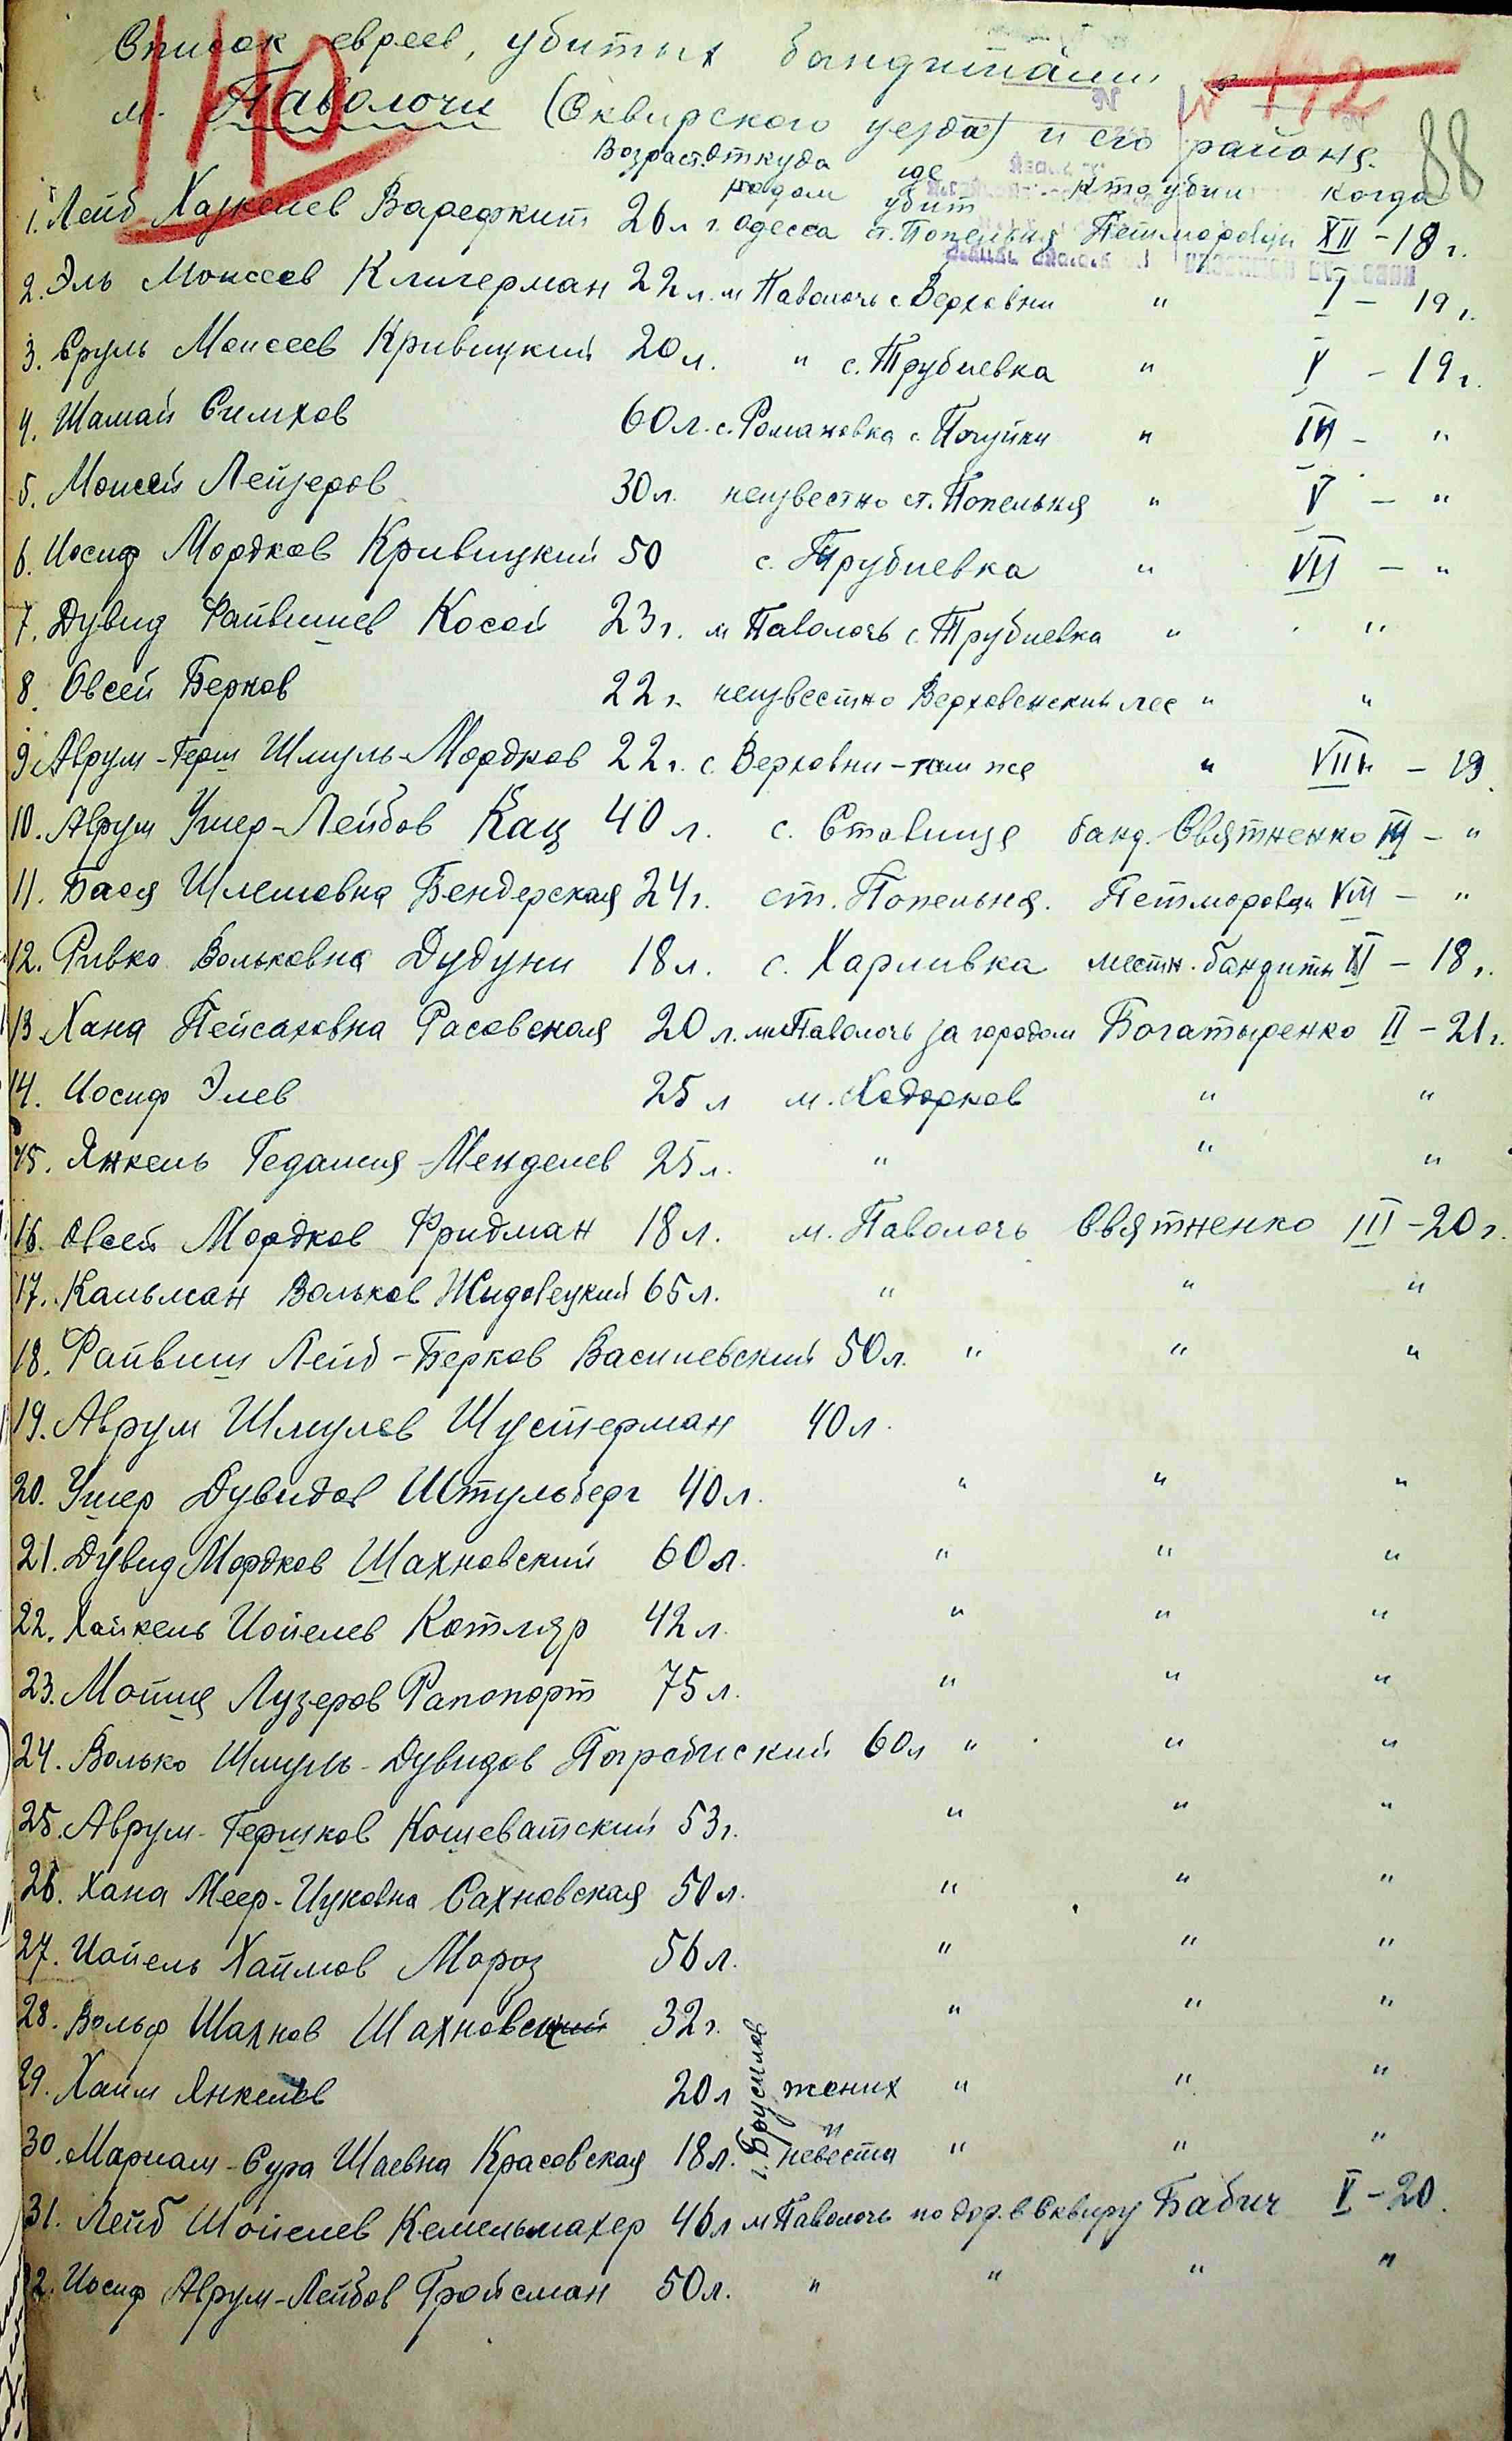 Список евреев, убитых бандитами в
м. Паволочи (Сквирского уезда) и его районе.
140
88
Возраст. Откуда родом где убит кто убил когда
1. Лейб Хаскелев Варефкит 26 л г. Одесса ст. Попельня Петлюровцы XII - 18 г.
2. Эль Моисеев Клигерман 22 л. м Паволочь с. Верховни " I - 19 г.
3. Сруль Моисеев Кривицкий 20 л. " с. Трубиевка " V - 19 г.
4. Шамай Симхов 60 л. с. Романовка с. Почуйки " IV - "
5. Моисей Лейзеров 30 л. неизвестно ст. Попельня " V - "
6. Иосиф Мордков Кривицкий 50 с. Трубиевка " VII - "
7. Дувид Файвишев Косой 23 г. м Паволочь с. Трубиевка " "
8. Овсей Берков 22 г. неизвестно Верховенский лес " "
9. Аврум-Герш Шмуль-Мордков 22 г. с. Верховни - там же " VIII - 19.
10. Аврум Ушер-Лейбов Кац 40 л. с. Ставище банд. Святненко - "
11. Бася Шлемовна Бендерская 24 г. ст. Попельня. Петлюровцы VIII - "
12. Ривко Вольковна Дудуни 18 л. с. Харливка местн. бандиты XI - 18 г.
13 Хана Пейсаховна Расовская 20 л. м Паволочь за городом Богатыренко II - 21 г.
14. Иосиф Элев 25 л м. Ходорков " "
15. Янкель Гедалия-Менделев 25 л. " " "
16. Овсей Мордков Фридман 18 л. м. Паволочь Святненко III - 20 г.
17. Кальман Вольков Жидовецкий 65 л. " " "
18. Файвиш Лейб-Берков Василевский 50 л. " " "
19. Аврум Шмулев Шустерман 40 л.
20. Ушер Дувидов Штульберг 40 л. " " "
21. Дувид Мордков Шахновский 60 л. " " "
22. Хайкель Иойелев Котляр 42 л. " " "
23. Мойше Лузеров Рапопорт 75 л. " " "
24. Волько Шмуль-Дувидов Погребиский 60 л " " "
25. Аврум-Гершков Кошеватский 53 г. " " "
26. Хана Меер-Ицковна Сахновская 50 л. " " "
27. Иойель Хаимов Мороз 56 л. " " "
28. Вольф Шахнов Шахновский 32 г. " " "
29. Хаим Янкелев 20 л г. Брусилов жених " " "
30. Мариам-Сура Шаевна Красовская 18 л. " невеста " " "
31. Лейб Шойелев Кемельмахер 46 л м Паволочь по дор. в Сквиру Бабич V - 20.
32. Иосиф Аврум-Лейбов Гройсман 50 л. " " " "